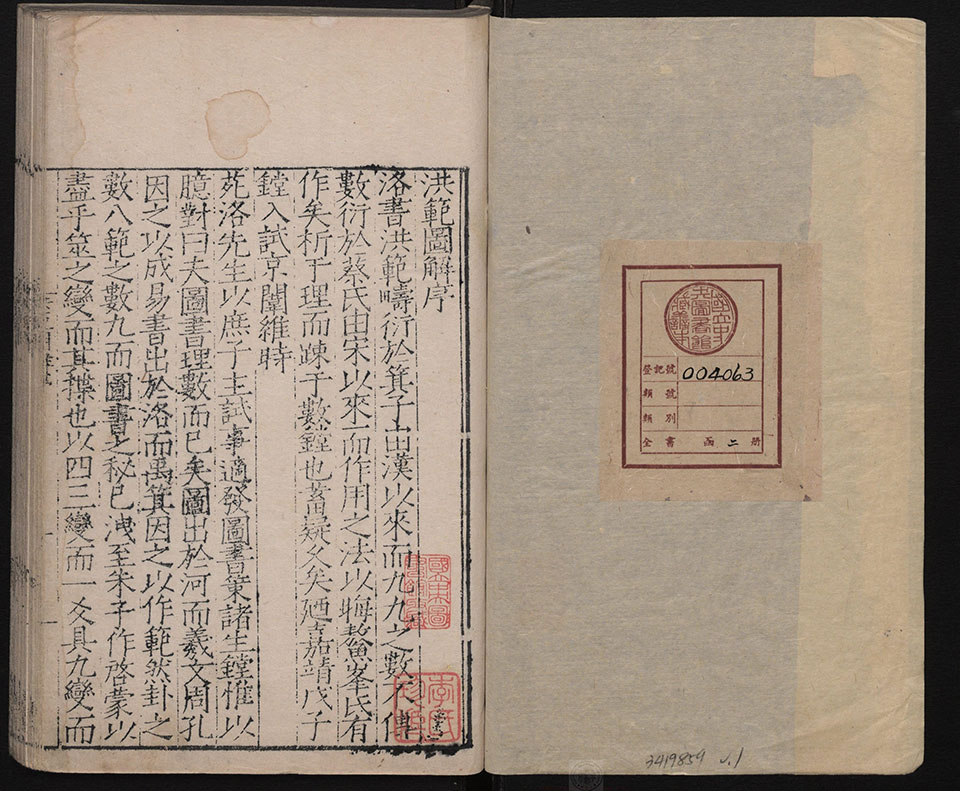 登記號 004063
類號
類別
全書 函 二 册
3419854 v.1
洪範圖解序
洛書洪範疇衍於箕子由漢以來而九九之數不傳
數衍於蔡氏由宋以來而作用之法以晦鰲峯氏有
作矣析于理而疎于數鏜也蓄疑久矣廼嘉靖戊子
鏜入試京闈維時
苑洛先生以庶子主試事適發圖書策諸生鏜惟以
臆對曰夫圖書理數而已矣圖出於河而羲文周孔
因之以成易書出於洛而禹箕因之以作範然卦之
數八範之數九而圖書之秘已洩至朱子作啓蒙以
盡乎筮之變而其揲也以四三變而一爻具九變而